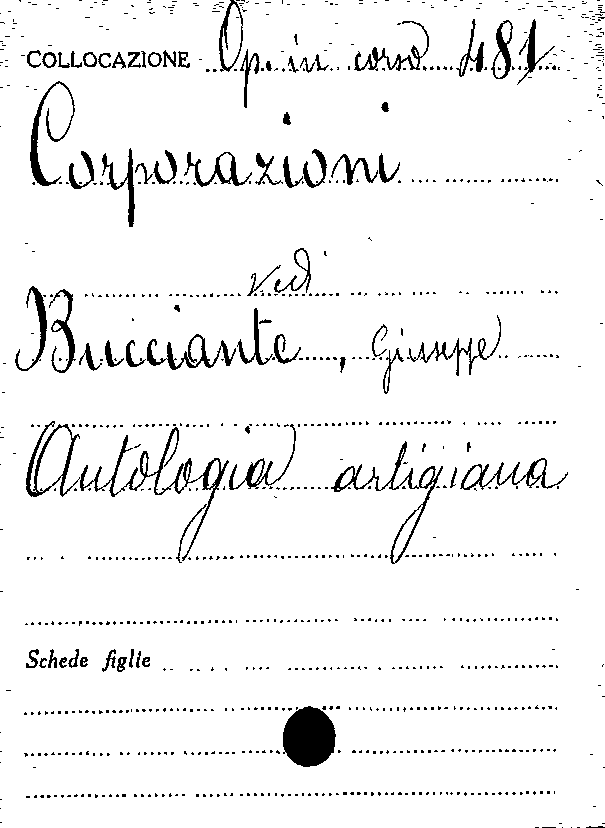 COLLOCAZIONE Op. in corso 481
Corporazioni
vedi
Bucciante, Giuseppe
Antologia artigiana
Schede figlie